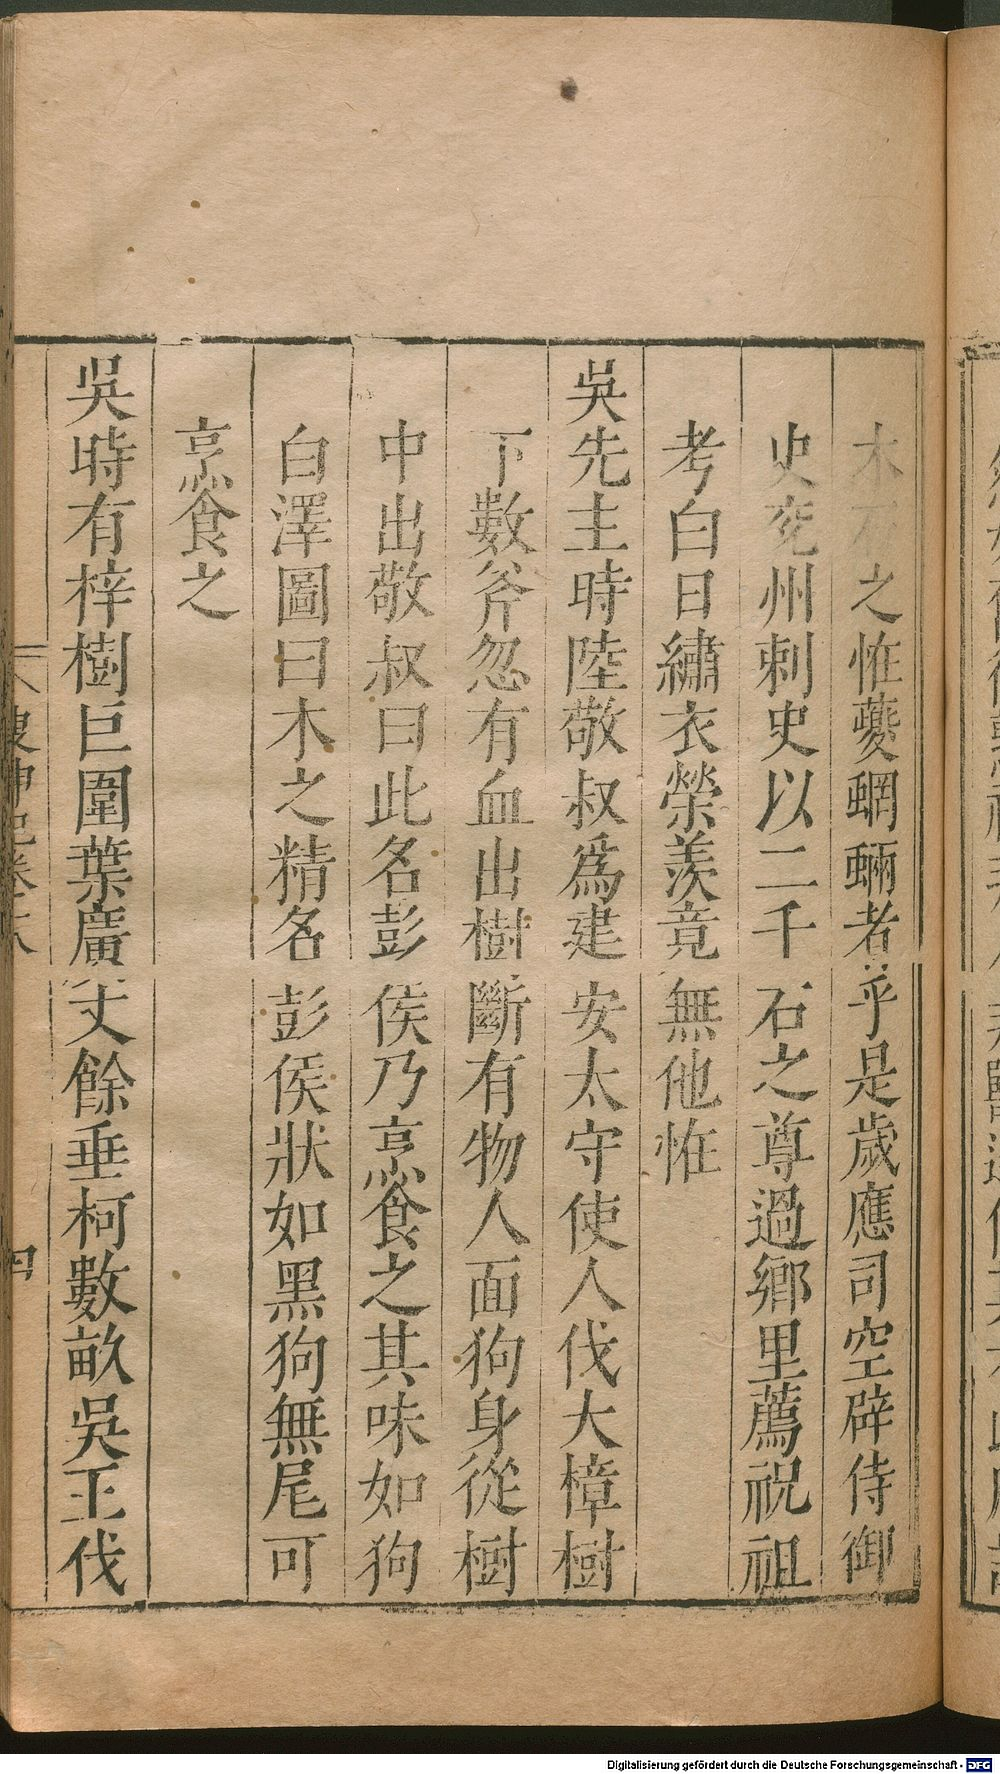 木石之恠夔蝄蜽者乎是歲應司空辟侍御
史兗州刺史以二千石之尊過鄉里薦祝祖
考白日繡衣榮羨竟無他恠
吳先主時陸敬叔爲建安太守使人伐大樟樹
下數斧忽有血出樹斷有物人面狗身從樹
中出敬叔曰此名彭侯乃烹食之其味如狗
白澤圖曰木之精名彭侯狀如黑狗無尾可
烹食之
吳時有梓樹巨圍葉廣丈餘垂柯數畝吳王伐
搜神記卷十八
四
Digitalisierung gefördert durch die Deutsche Forschungsgemeinschaft - DFG